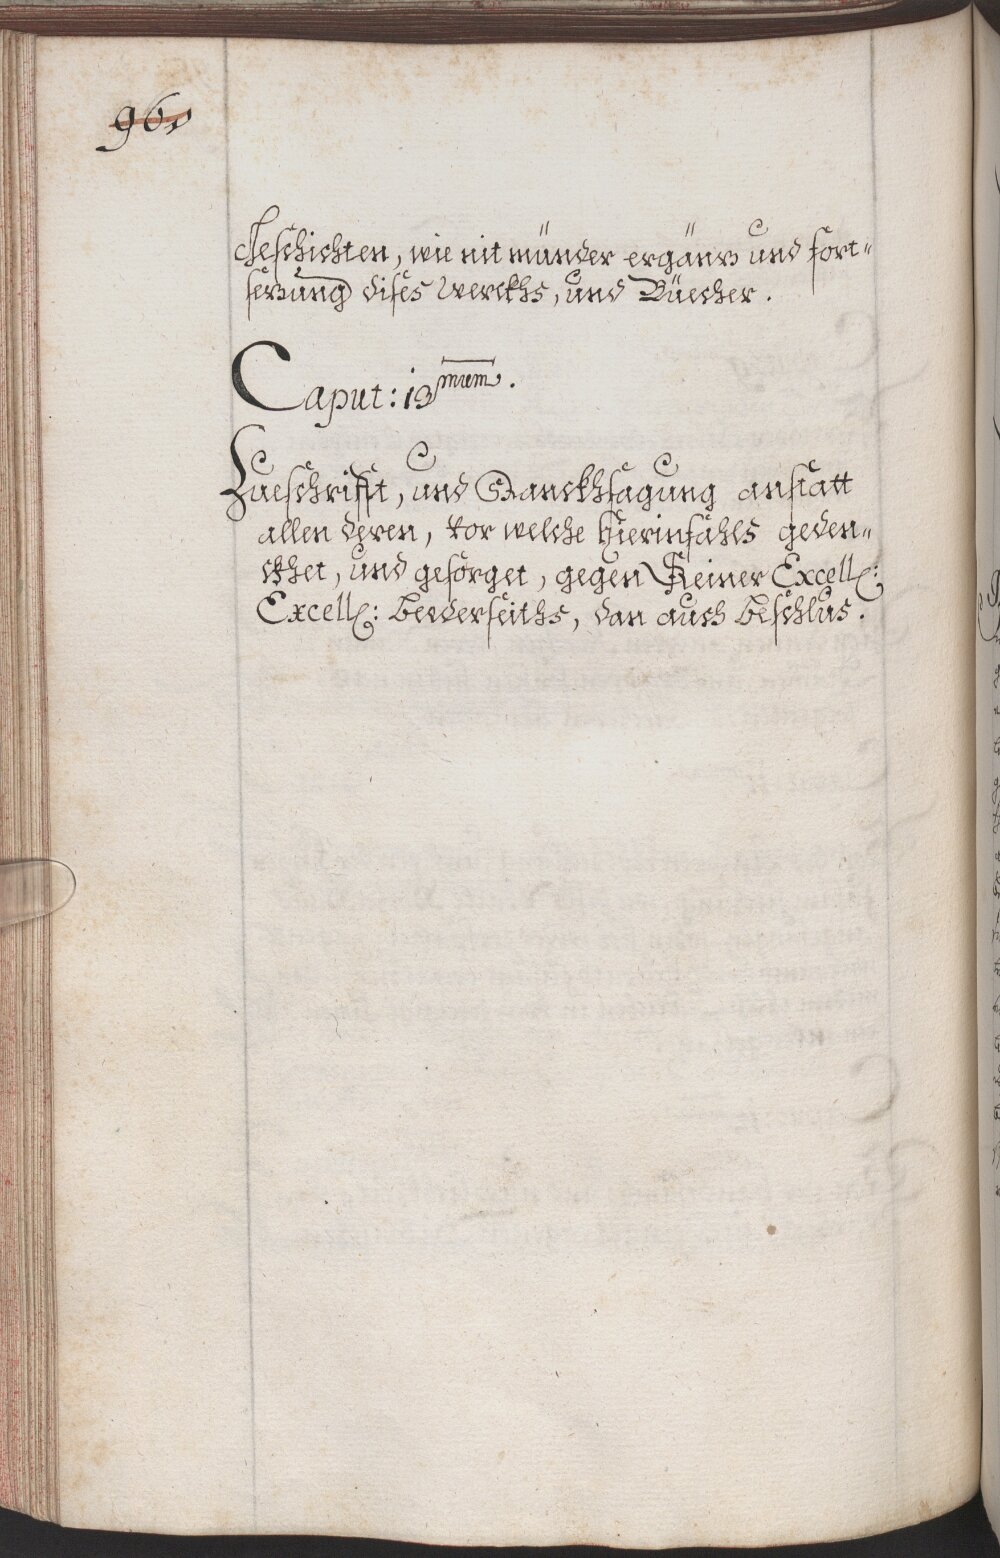 960
Geschichten, wie nit münder ergänz und fort„
sezung dises Werckhs, und Büecher.
Caput: 13mum.
Zueschrifft, und Danckhsagung anstatt
allen deren, vor welche hierinfahls geden„
ckhet, und gesorget, gegen Seiner Excell:
Excell: bederseiths, dan auch beschlus.